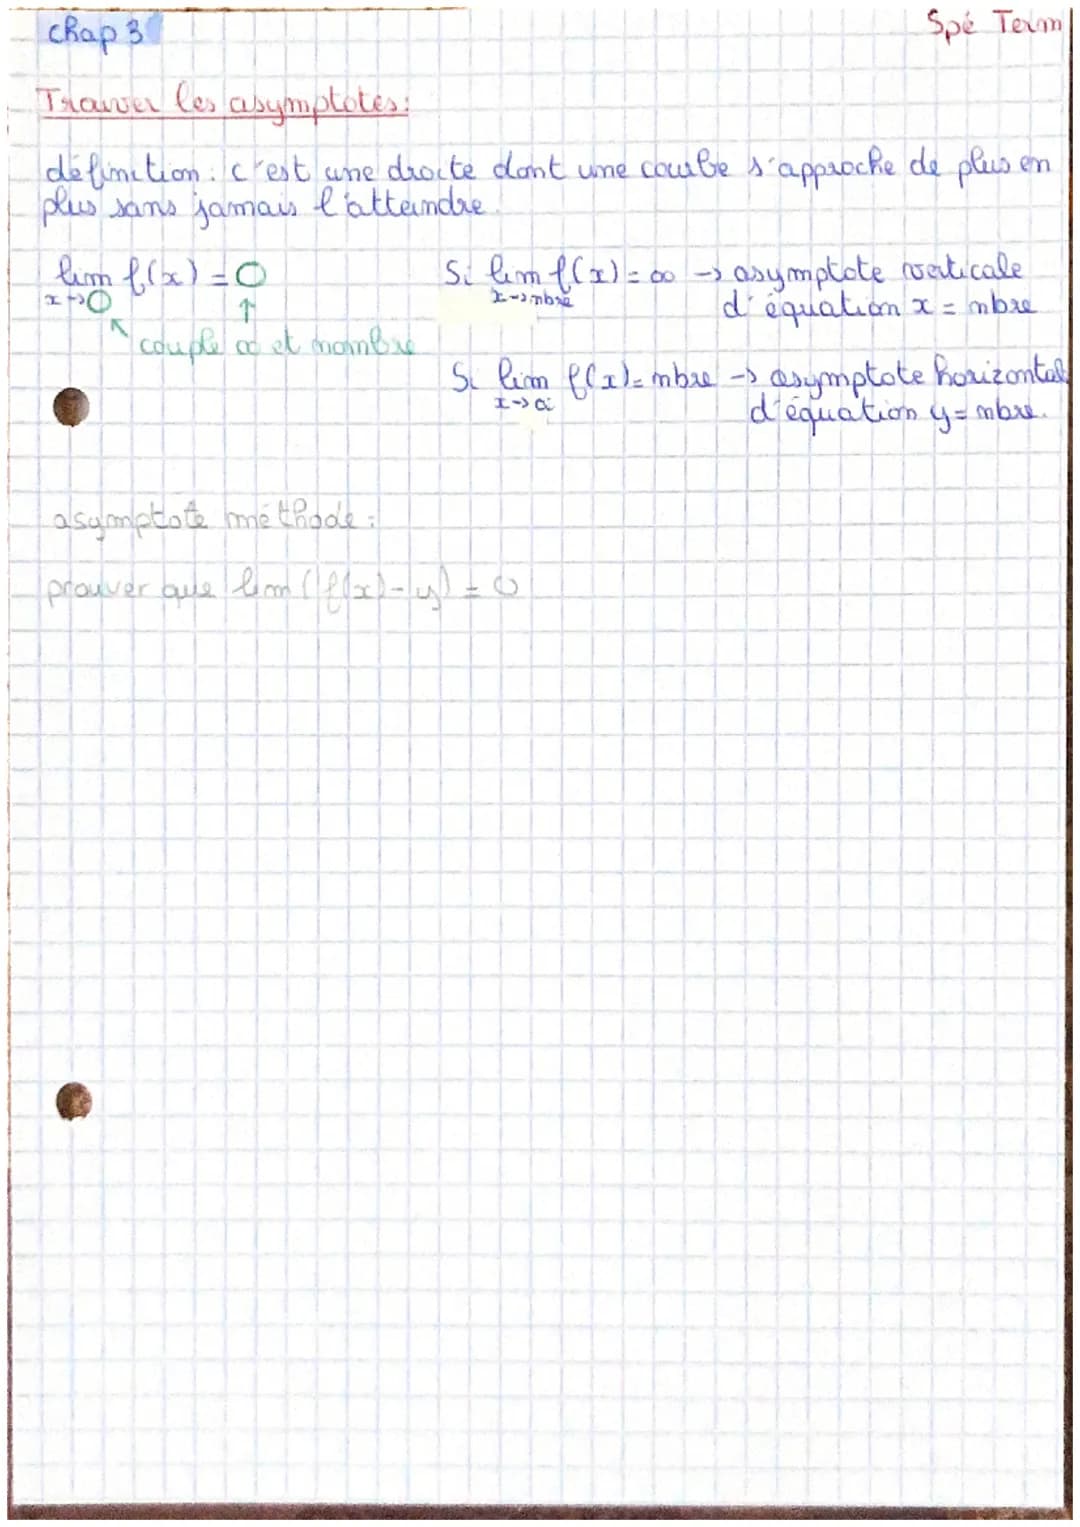 chap 3
Spé Term
Trouver les asymptotes:
définition: c'est une droite dont une courbe s'approche de plus en
plus sans jamais l'atteindre.
lim f(x) = O
x→O
couple ∞ et nombre
Si lim f(x) = ∞ → asymptote verticale
x→nbre
d'équation x = nbre
Si lim f(x) = nbre → asymptote horizontal
x→∞
d'équation y = nbre.
asymptote méthode:
prouver que lim (f(x)-y) = 0